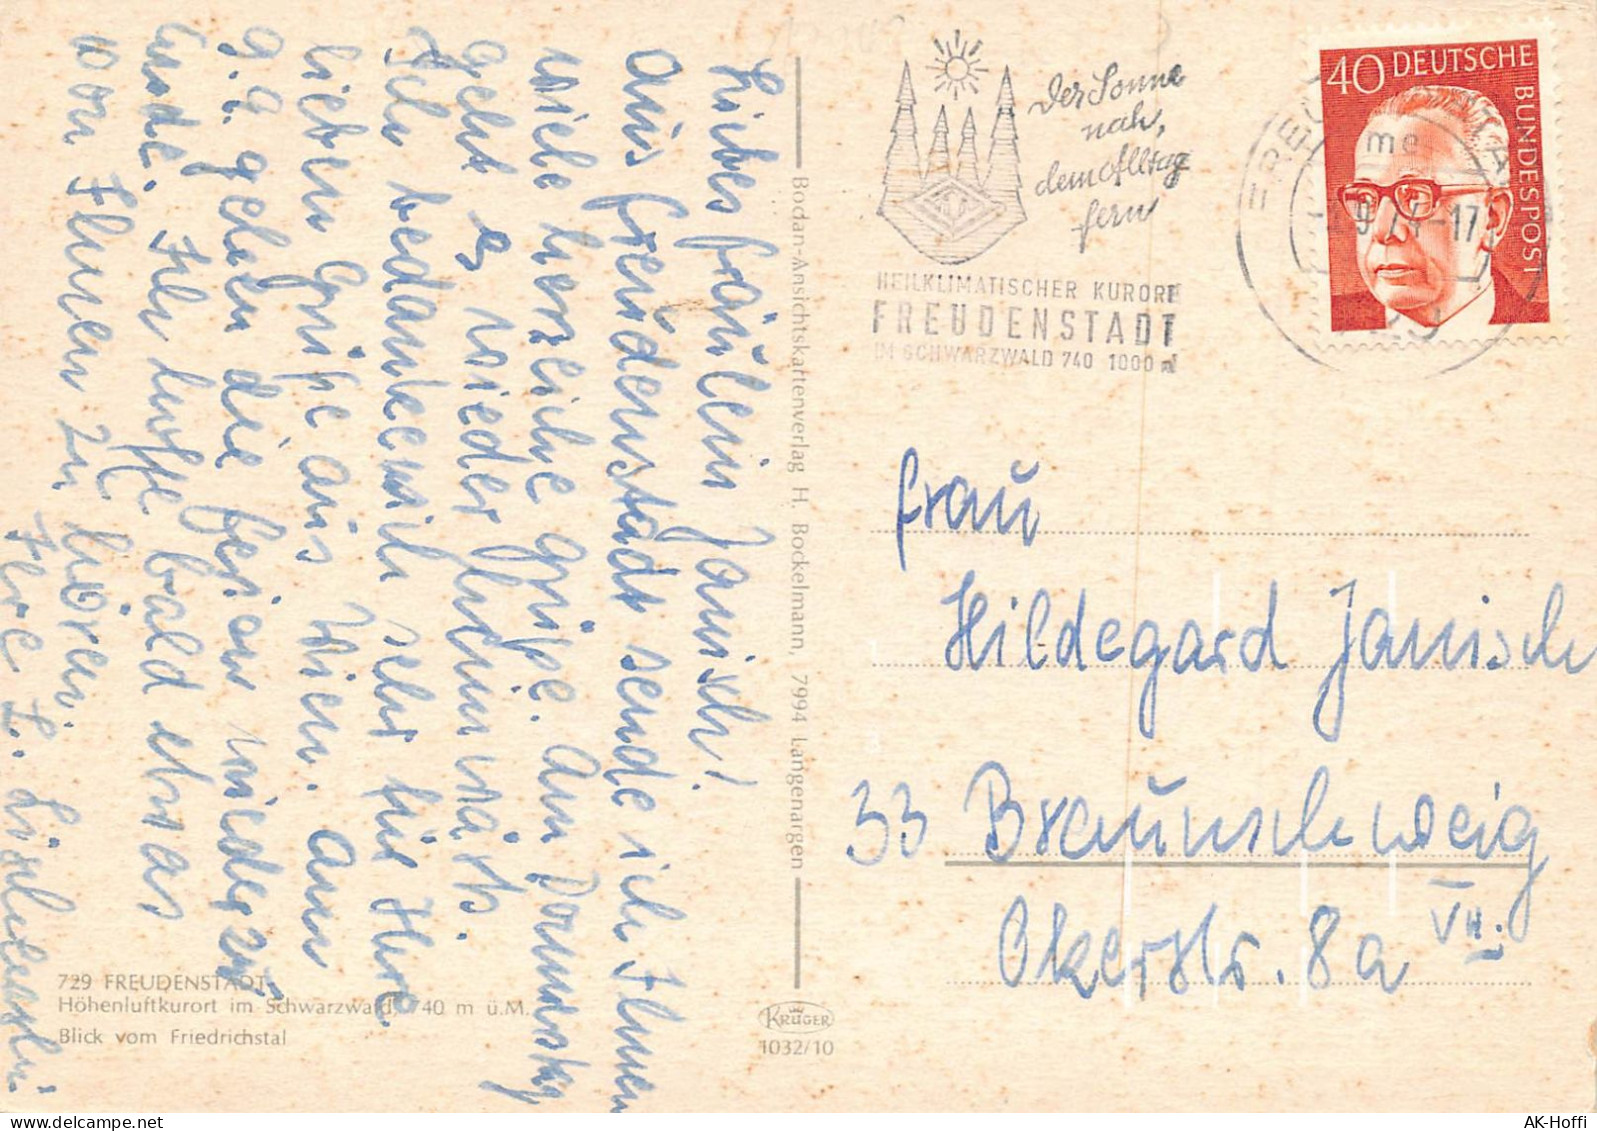 Liebes Fräulein Janisch!
Aus Freudenstadt sende ich Ihnen
viele herzliche Grüße. Am Donnerstag
geht es wieder heimwärts.
Ich bedanke mich sehr für Ihre
lieben Grüße aus Wien. Am
9.9. gehen die Ferien wieder zu
Ende. Ich hoffe bald etwas
von Ihnen zu hören.
Ihre L.
Bodan-Ansichtskartenverlag H. Bockelmann, 7994 Langenargen
729 FREUDENSTADT
Höhenluftkurort im Schwarzwald, 740 m ü.M.
Blick vom Friedrichstal
KRÜGER
1032/10
Der Sonne
nah,
dem Alltag
fern
HEILKLIMATISCHER KURORT
FREUDENSTADT
IM SCHWARZWALD 740 1000 m
40 DEUTSCHE
BUNDESPOST
me
-17
Frau
Hildegard Janisch
33 Braunschweig
Okerstr. 8a VII.
AK-Hoffi